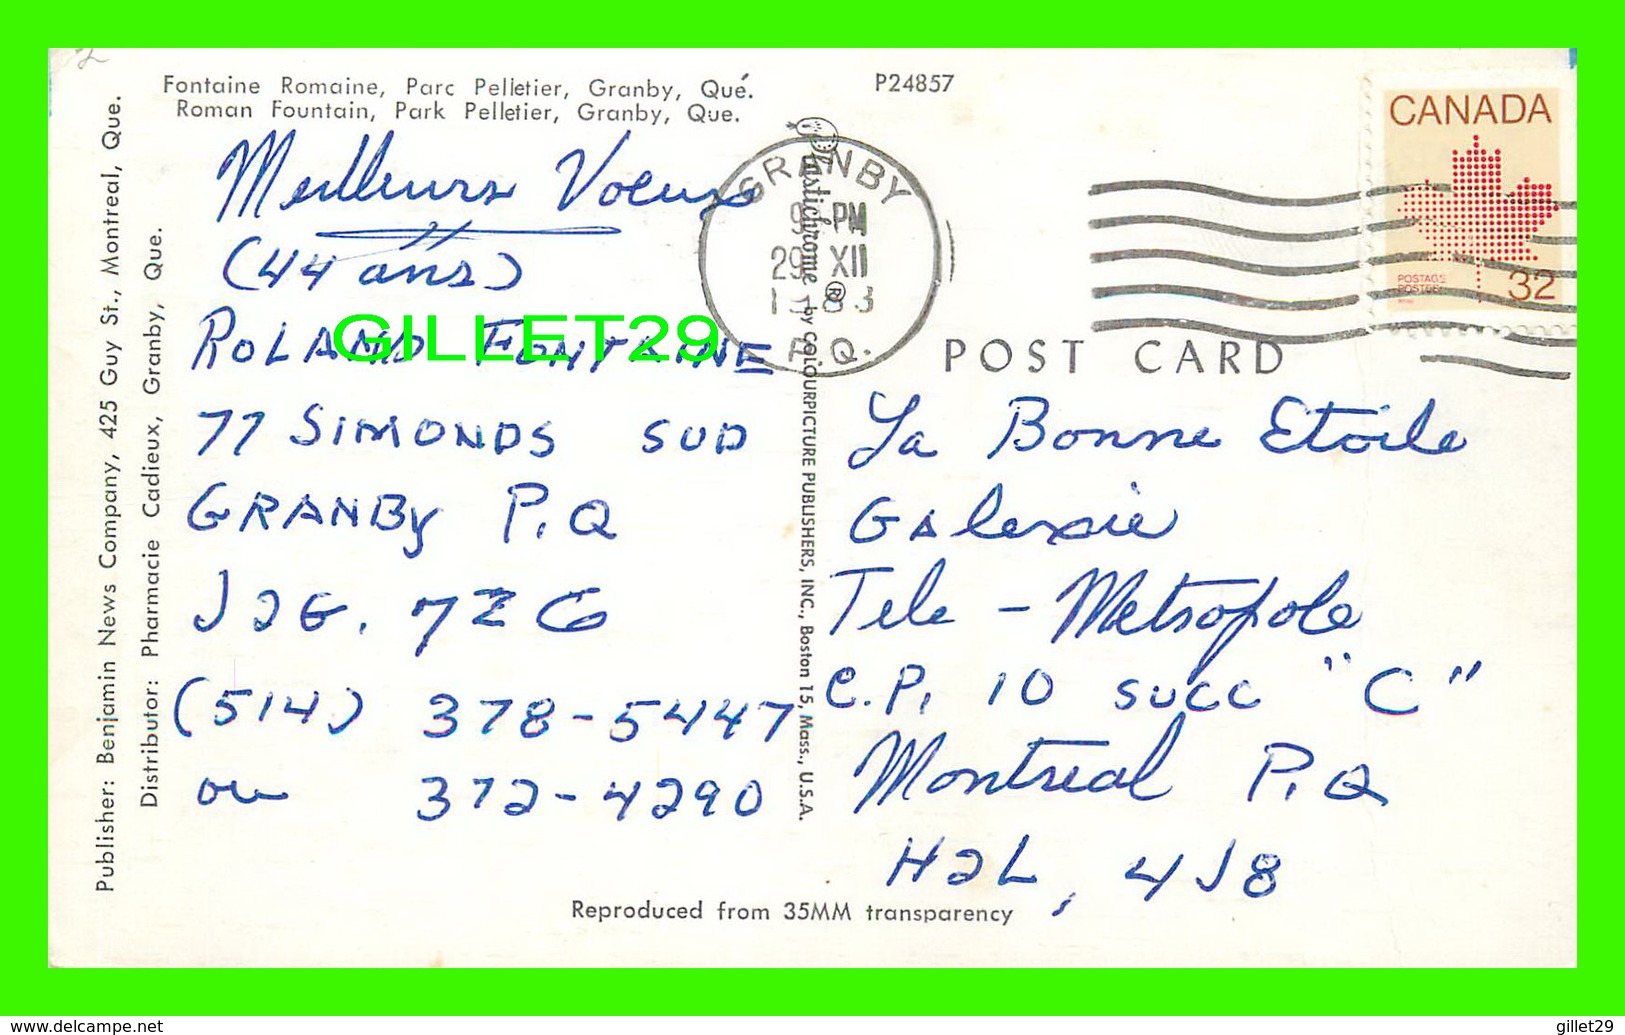 Fontaine Romaine, Parc Pelletier, Granby, Qué.
Roman Fountain, Park Pelletier, Granby, Que.
P24857
Meilleurs Voeux
(44 ans)
ROLAND FONTAINE
77 SIMONDS SUD
GRANBY P.Q
J2G. 7Z6
(514) 378-5447
ou 372-4290
Publisher: Benjamin News Company, 425 Guy St., Montreal, Que.
Distributor: Pharmacie Cadieux, Granby, Que.
GILLET29
GRANBY
9 PM
29 XII
1983
P.Q.
Plastichrome ® by COLOURPICTURE PUBLISHERS, INC., Boston 15, Mass., U.S.A.
CANADA
POSTAGE
POSTES
32
POST CARD
La Bonne Etoile
Galexie
Tele - Metropole
C.P. 10 succ "C"
Montreal P.Q
H2L, 4J8
Reproduced from 35MM transparency
www.delcampe.net
gillet29